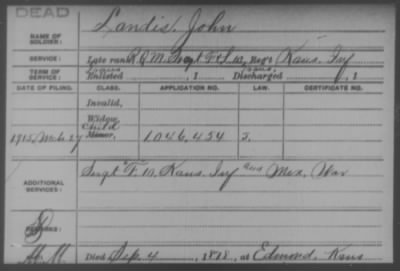 DEAD
Landis, John
NAME OF SOLDIER:
SERVICE: Late rank R.Q.M. Sergt F & S. 10, Reg't Kans. Inf
TERM OF SERVICE: Enlisted , 1 Discharged , 1
DATE OF FILING. CLASS. APPLICATION NO. LAW. CERTIFICATE NO.
Invalid,
Widow,
Child
1915, Mch. 27 Minor, 1046,454
ADDITIONAL SERVICES: Sergt "F" 10, Kans. Inf and Mex. War
REMARKS:
Died Sep. 4, 1878, at Edmond, Kans